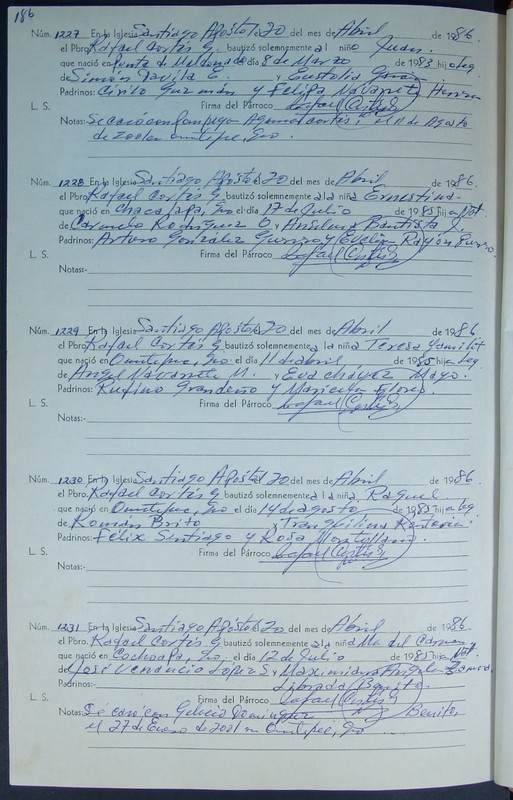 186
Núm. 1227 En la Iglesia Santiago Apóstol 20 del mes de Abril de 1986.
el Pbro. Rafael Cortés G. bautizó solemnemente al niño Juan.
que nació en Punta de Maldonado el día 8 de Marzo de 1983 hijo leg.
de Simón Davila E. y Eustolia
Padrinos: Cirilo Guzmán y Felipa Navarrete Herrera
L. S. Firma del Párroco Rafael Cortés G
Notas: Se casó con 11 de Agosto
de Ometepec, Gro.
Núm. 1228 En la Iglesia Santiago Apóstol 20 del mes de Abril de 1986.
el Pbro. Rafael Cortés G bautizó solemnemente a la niña Ernestina.
que nació en Chacalapa, Gro el día 17 de Julio de 1985 hija Nat.
de Carmelo Rodríguez O. y Anselma Bautista J.
Padrinos: Arturo González Guerrero y Evelia Rayón Guerrero.
L. S. Firma del Párroco Rafael Cortés G
Notas:
Núm. 1229 En la Iglesia Santiago Apóstol 20 del mes de Abril de 1986
el Pbro. Rafael Cortés G. bautizó solemnemente a la niña Teresa Yamilet
que nació en Ometepec, Gro. el día 11 de abril de 1985 hija leg.
de Angel Navarrete M. y Eva Chávez Mayo.
Padrinos: Rufino Grandeño y Maricela Flores.
L. S. Firma del Párroco Rafael Cortés G
Notas:
Núm. 1230 En la Iglesia Santiago Apóstol 20 del mes de Abril de 1986
el Pbro. Rafael Cortés G bautizó solemnemente a la niña Raquel.
que nació en Ometepec, Gro el día 14 de agosto de 1985 hija leg
de Román Brito y Tranquilina
Padrinos: Félix Santiago y Rosa Montellano.
L. S. Firma del Párroco Rafael Cortés G
Notas:
Núm. 1231 En la Iglesia Santiago Apóstol 20 del mes de Abril de 1986-
el Pbro. Rafael Cortés G. bautizó solemnemente a la niña Ma. del Carmen
que nació en Cochoapa, Gro. el día 12 de Julio de 1985 hija Nat.
de José Venancio López S y Maximiana Angela Zamora
Padrinos: Librada Benito.
L. S. Firma del Párroco Rafael Cortés G
Notas: Se casó con Domínguez Benito
el 27 de Enero de 2001 en Ometepec, Gro